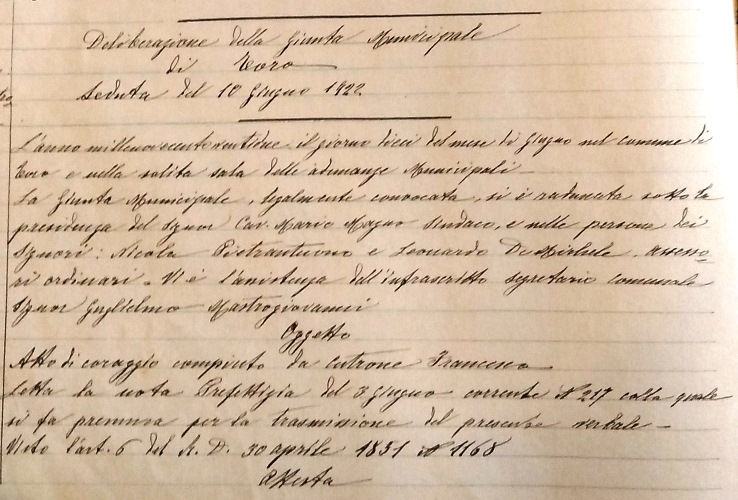 Deliberazione della Giunta Municipale
di Toro
Seduta del 10 Giugno 1922
L'anno millenovecentoventidue il giorno dieci del mese di Giugno nel comune di
Toro e nella solita sala delle adunanze Municipali
La Giunta Municipale, legalmente convocata, si è radunata sotto la
presidenza del Signor Cav. Mario Magno Sindaco, e nelle persone dei
Signori: Nicola Pietrantuono e Leonardo De Michele, assesso=
ri ordinari. Vi è l'assistenza dell'infrascritto segretario comunale
Signor Guglielmo Mastrogiovanni
Oggetto
Atto di coraggio compiuto da Cutrone Francesco
Letta la nota Prefettizia del 3 giugno corrente N 217 colla quale
si fa premura per la trasmissione del presente verbale -
Visto l'art. 6 del R. D. 30 aprile 1851 N 1168
Attesta